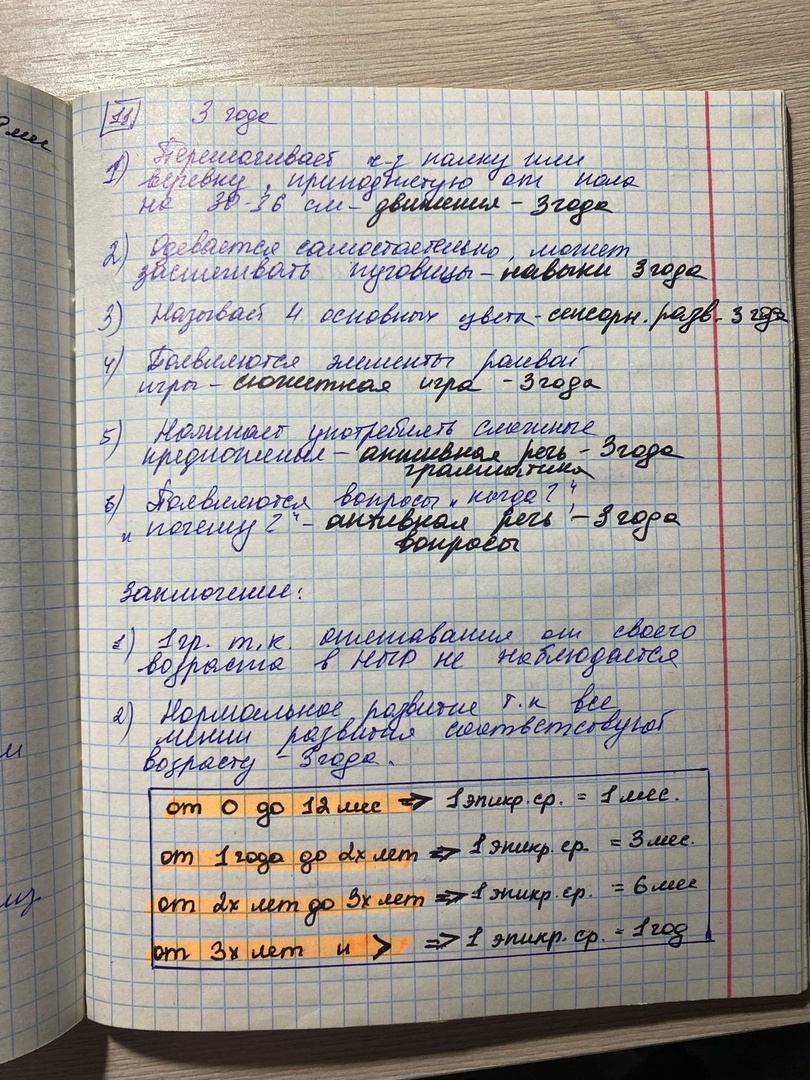 11 3 года
1) Перешагивает ч-з палку или
веревку, приподнятую от пола
на 30-36 см - движения - 3 года
2) Одевается самостоятельно, может
застегивать пуговицы - навыки 3 года
3) Называет 4 основных цвета - сенсорн. разв. - 3 года
4) Появляются элементы ролевой
игры - сюжетная игра - 3 года
5) Начинает употреблять сложные
предложения - активная речь - 3 года
грамматика
6) Появляются вопросы "когда?",
"почему?" - активная речь - 3 года
вопросы
Заключение:
1) 1 гр. т.к. отставания от своего
возраста в НПР не наблюдается
2) Нормальное развитие т.к все
линии развития соответствуют
возрасту - 3 года.
от 0 до 12 мес => 1 эпикр. ср. = 1 мес.
от 1 года до 2х лет => 1 эпикр. ср. = 3 мес.
от 2х лет до 3х лет => 1 эпикр. ср. = 6 мес
от 3х лет и > => 1 эпикр. ср. = 1 год